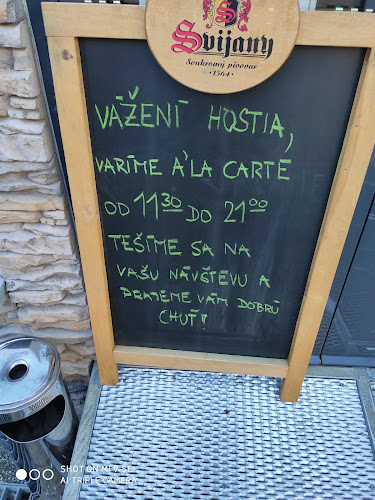 Svijany
Soukromý pivovar
1564
VÁŽENÍ HOSTIA,
VARÍME A'LA CARTE
OD 11³⁰ DO 21⁰⁰
TEŠÍME SA NA
VAŠU NÁVŠTEVU A
PRAJEME VÁM DOBRÚ
CHUŤ!
SHOT ON MI 9 SE
AI TRIPLE CAMERA